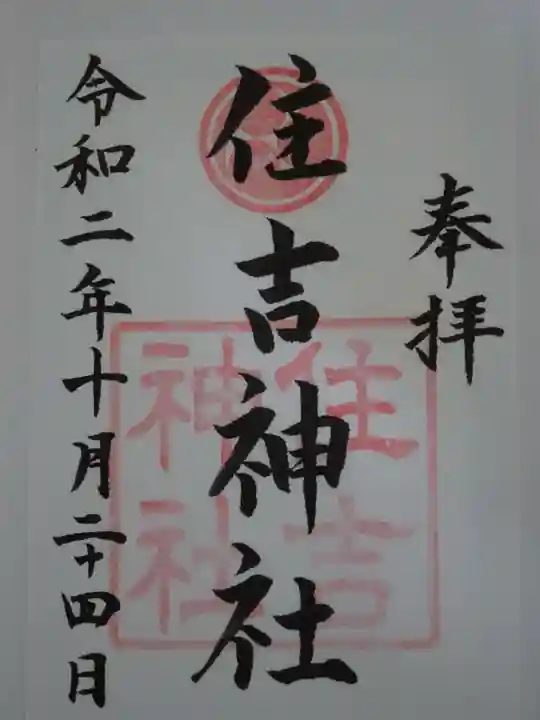 奉拝
住吉神社
住吉
神社
令和二年十月二十四日